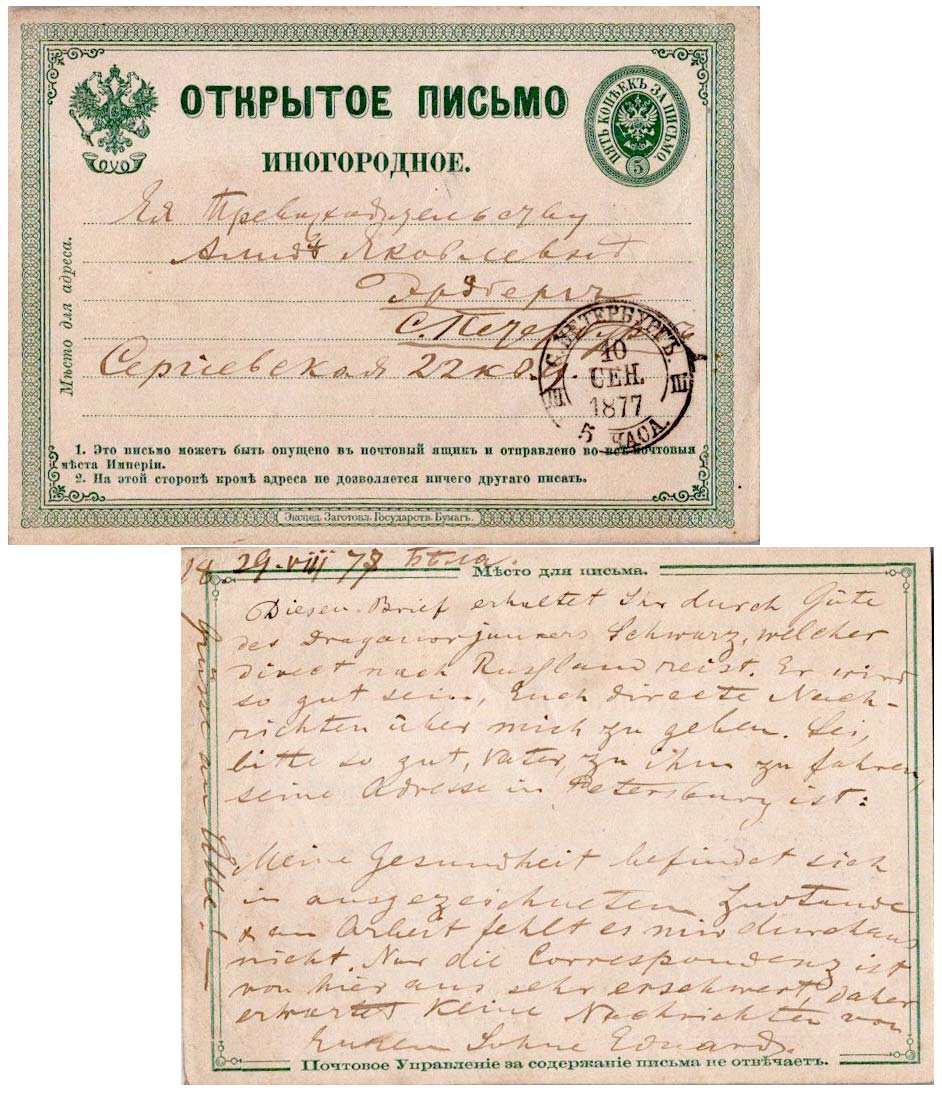 ОТКРЫТОЕ ПИСЬМО
ИНОГОРОДНОЕ.
ПЯТЬ КОПѢЕКЪ ЗА ПИСЬМО.
5
Мѣсто для адреса.
Ея Превосходительству
Алидѣ Яковлевнѣ
С. Петербургъ
Сергіевская 22 кв.
С. ПЕТЕРБУРГЪ.
10
СЕН.
1877
5 ЧАСА.
III
III
1. Это письмо можетъ быть опущено въ почтовый ящикъ и отправлено во всѣ почтовыя
мѣста Имперіи.
2. На этой сторонѣ кромѣ адреса не дозволяется ничего другаго писать.
Экспед. Заготовл. Государств. Бумагъ.
29. VIII 77 Бѣла.
Мѣсто для письма.
Diesen Brief erhaltet Ihr durch Güte
des Dragonerjunkers Schwarz, welcher
direct nach Russland reist. Er wird
so gut sein, Euch directe Nach-
richten über mich zu geben. Sei,
bitte so gut, Vater, zu ihm zu fahren,
seine Adresse in Petersburg ist:
Meine Gesundheit befindet sich
in ausgezeichnetem Zustande
& an Arbeit fehlt es mir durchaus
nicht. Nur die Correspondenz ist
von hier aus sehr erschwert, daher
erwartet keine Nachrichten von
Eurem Sohne Eduard.
Grüsse an Alle!
Почтовое Управленіе за содержаніе письма не отвѣчаетъ.